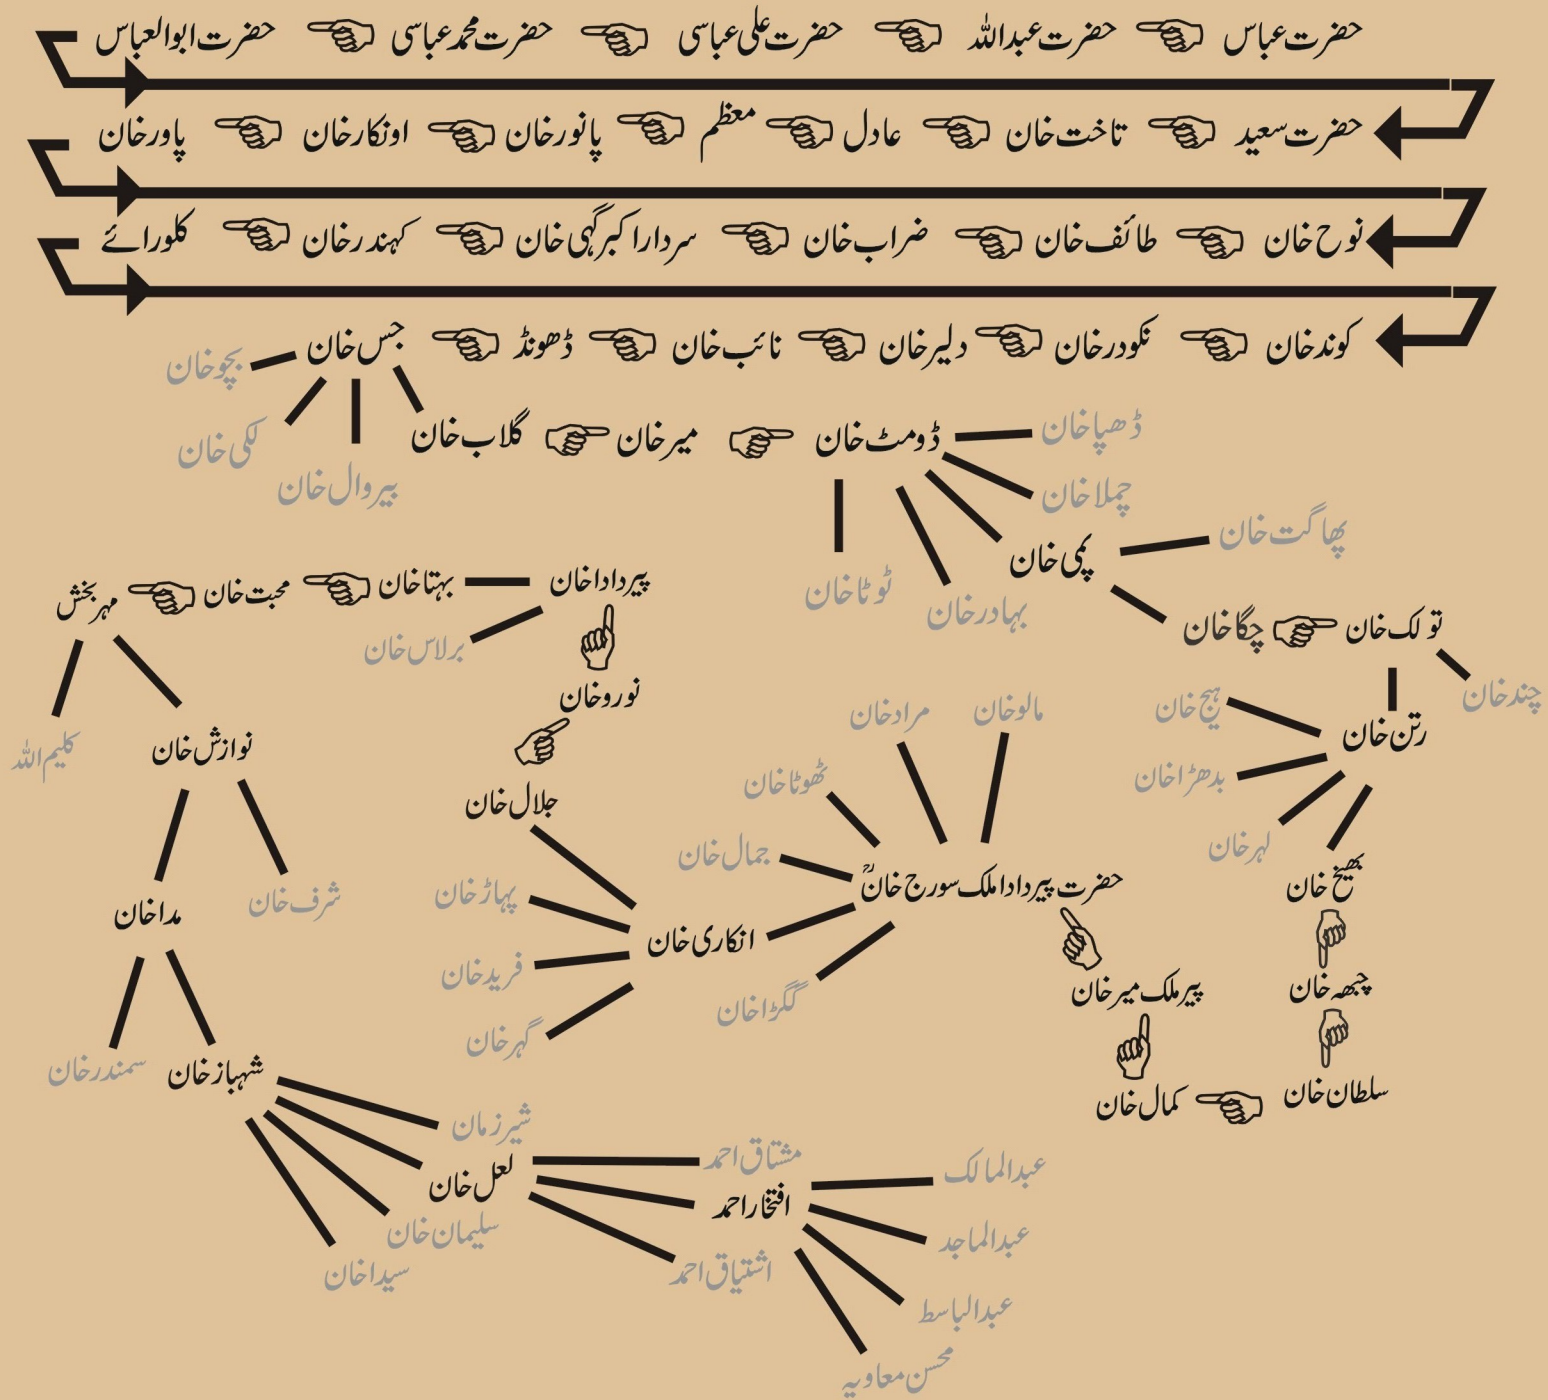 حضرت عباس حضرت عبداللہ حضرت علی عباسی حضرت محمد عباسی حضرت ابوالعباس
حضرت سعید تاخت خان عادل معظم پانور خان اونکار خان پاور خان
نوح خان طائف خان ضراب خان سردار اکبر گہی خان کہندر خان کلورائے
کوند خان نکودر خان دلیر خان نائب خان ڈھونڈ جس خان
بچو خان
لکی خان
بیروال خان
گلاب خان میر خان ڈومٹ خان
ڈھپا خان
چملا خان
پمی خان
بہادر خان
ٹوٹا خان
پھاگت خان
چگا خان تولک خان
چند خان
رتن خان
ہیج خان
بدھڑا خان
لہر خان
بھیخ خان
چبھہ خان
سلطان خان
کمال خان
پیر ملک میر خان
حضرت پیر دادا ملک سورج خانؒ
مالو خان
مراد خان
ٹھوٹا خان
جمال خان
انکاری خان
گگڑا خان
جلال خان
پہاڑ خان
فرید خان
گہر خان
نورو خان
پیر دادا خان
بہتا خان
برلاس خان
محبت خان
مہر بخش
کلیم اللہ
نوازش خان
شرف خان
مدا خان
سمندر خان
شہباز خان
شیر زمان
لعل خان
سلیمان خان
سیدا خان
مشتاق احمد
افتخار احمد
اشتیاق احمد
عبدالمالک
عبدالماجد
عبدالباسط
محسن معاویہ